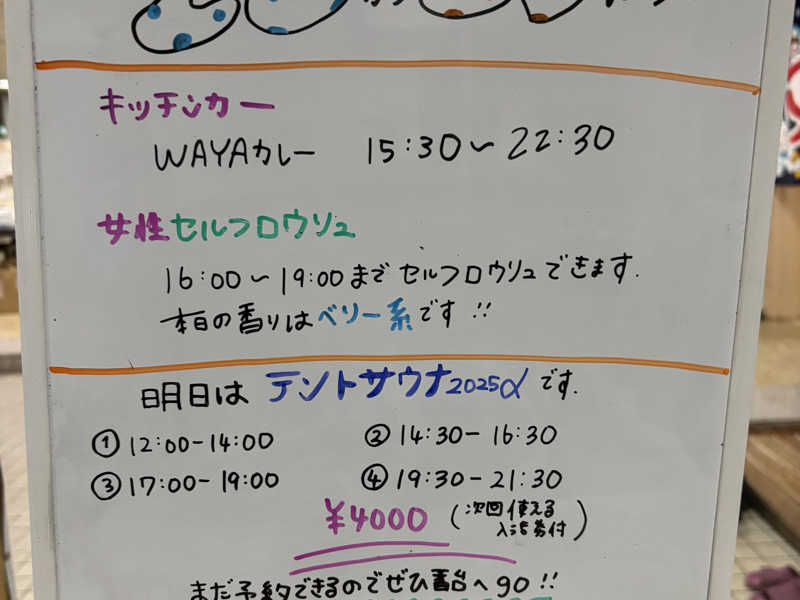 キッチンカー
WAYAカレー 15:30〜22:30
女性セルフロウリュ
16:00〜19:00まで セルフロウリュできます.
本日の香りはベリー系です!!
明日は テントサウナ2025α です.
① 12:00-14:00 ② 14:30-16:30
③ 17:00-19:00 ④ 19:30-21:30
¥4000 (次回使える
入浴券付)
まだ予約できるのでぜひ番台へgo!!